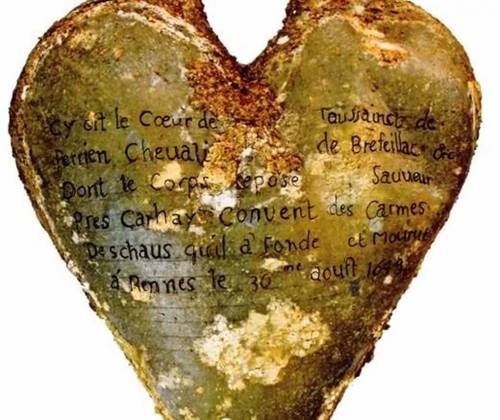 Cy Git le Cœur de Taussainct de
Perrien Chevali de Brefeillac
Dont le Corps Repose Sauveur
Pres Carhay Convent des Carmes
Deschaus quil a Fonde et Mourut
á Rennes le 30 me aoust